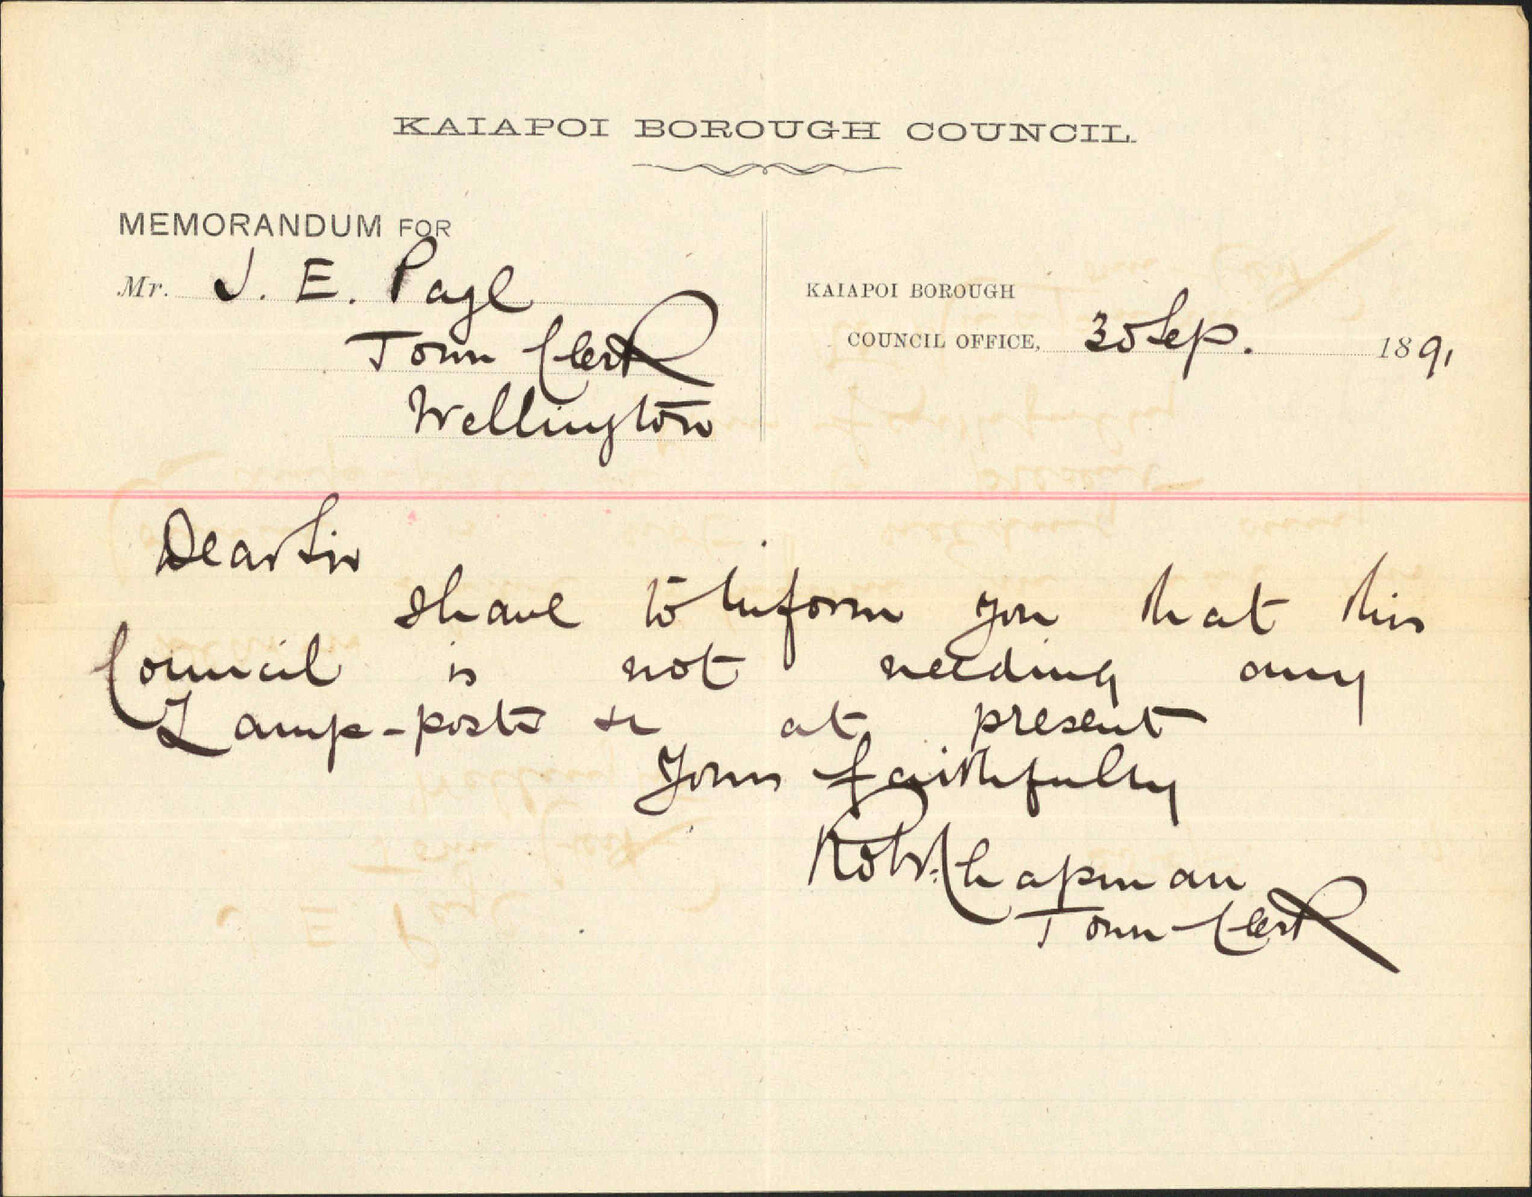 KAIAPOI BOROUGH COUNCIL.
MEMORANDUM FOR
Mr. J. E. Page
Town Clerk
Wellington
KAIAPOI BOROUGH
COUNCIL OFFICE, 30 Sep. 1891
Dear Sir
I have to inform you that this
Council is not needing any
Lamp-posts &c at present
Yours faithfully
Robt. Chapman
Town Clerk